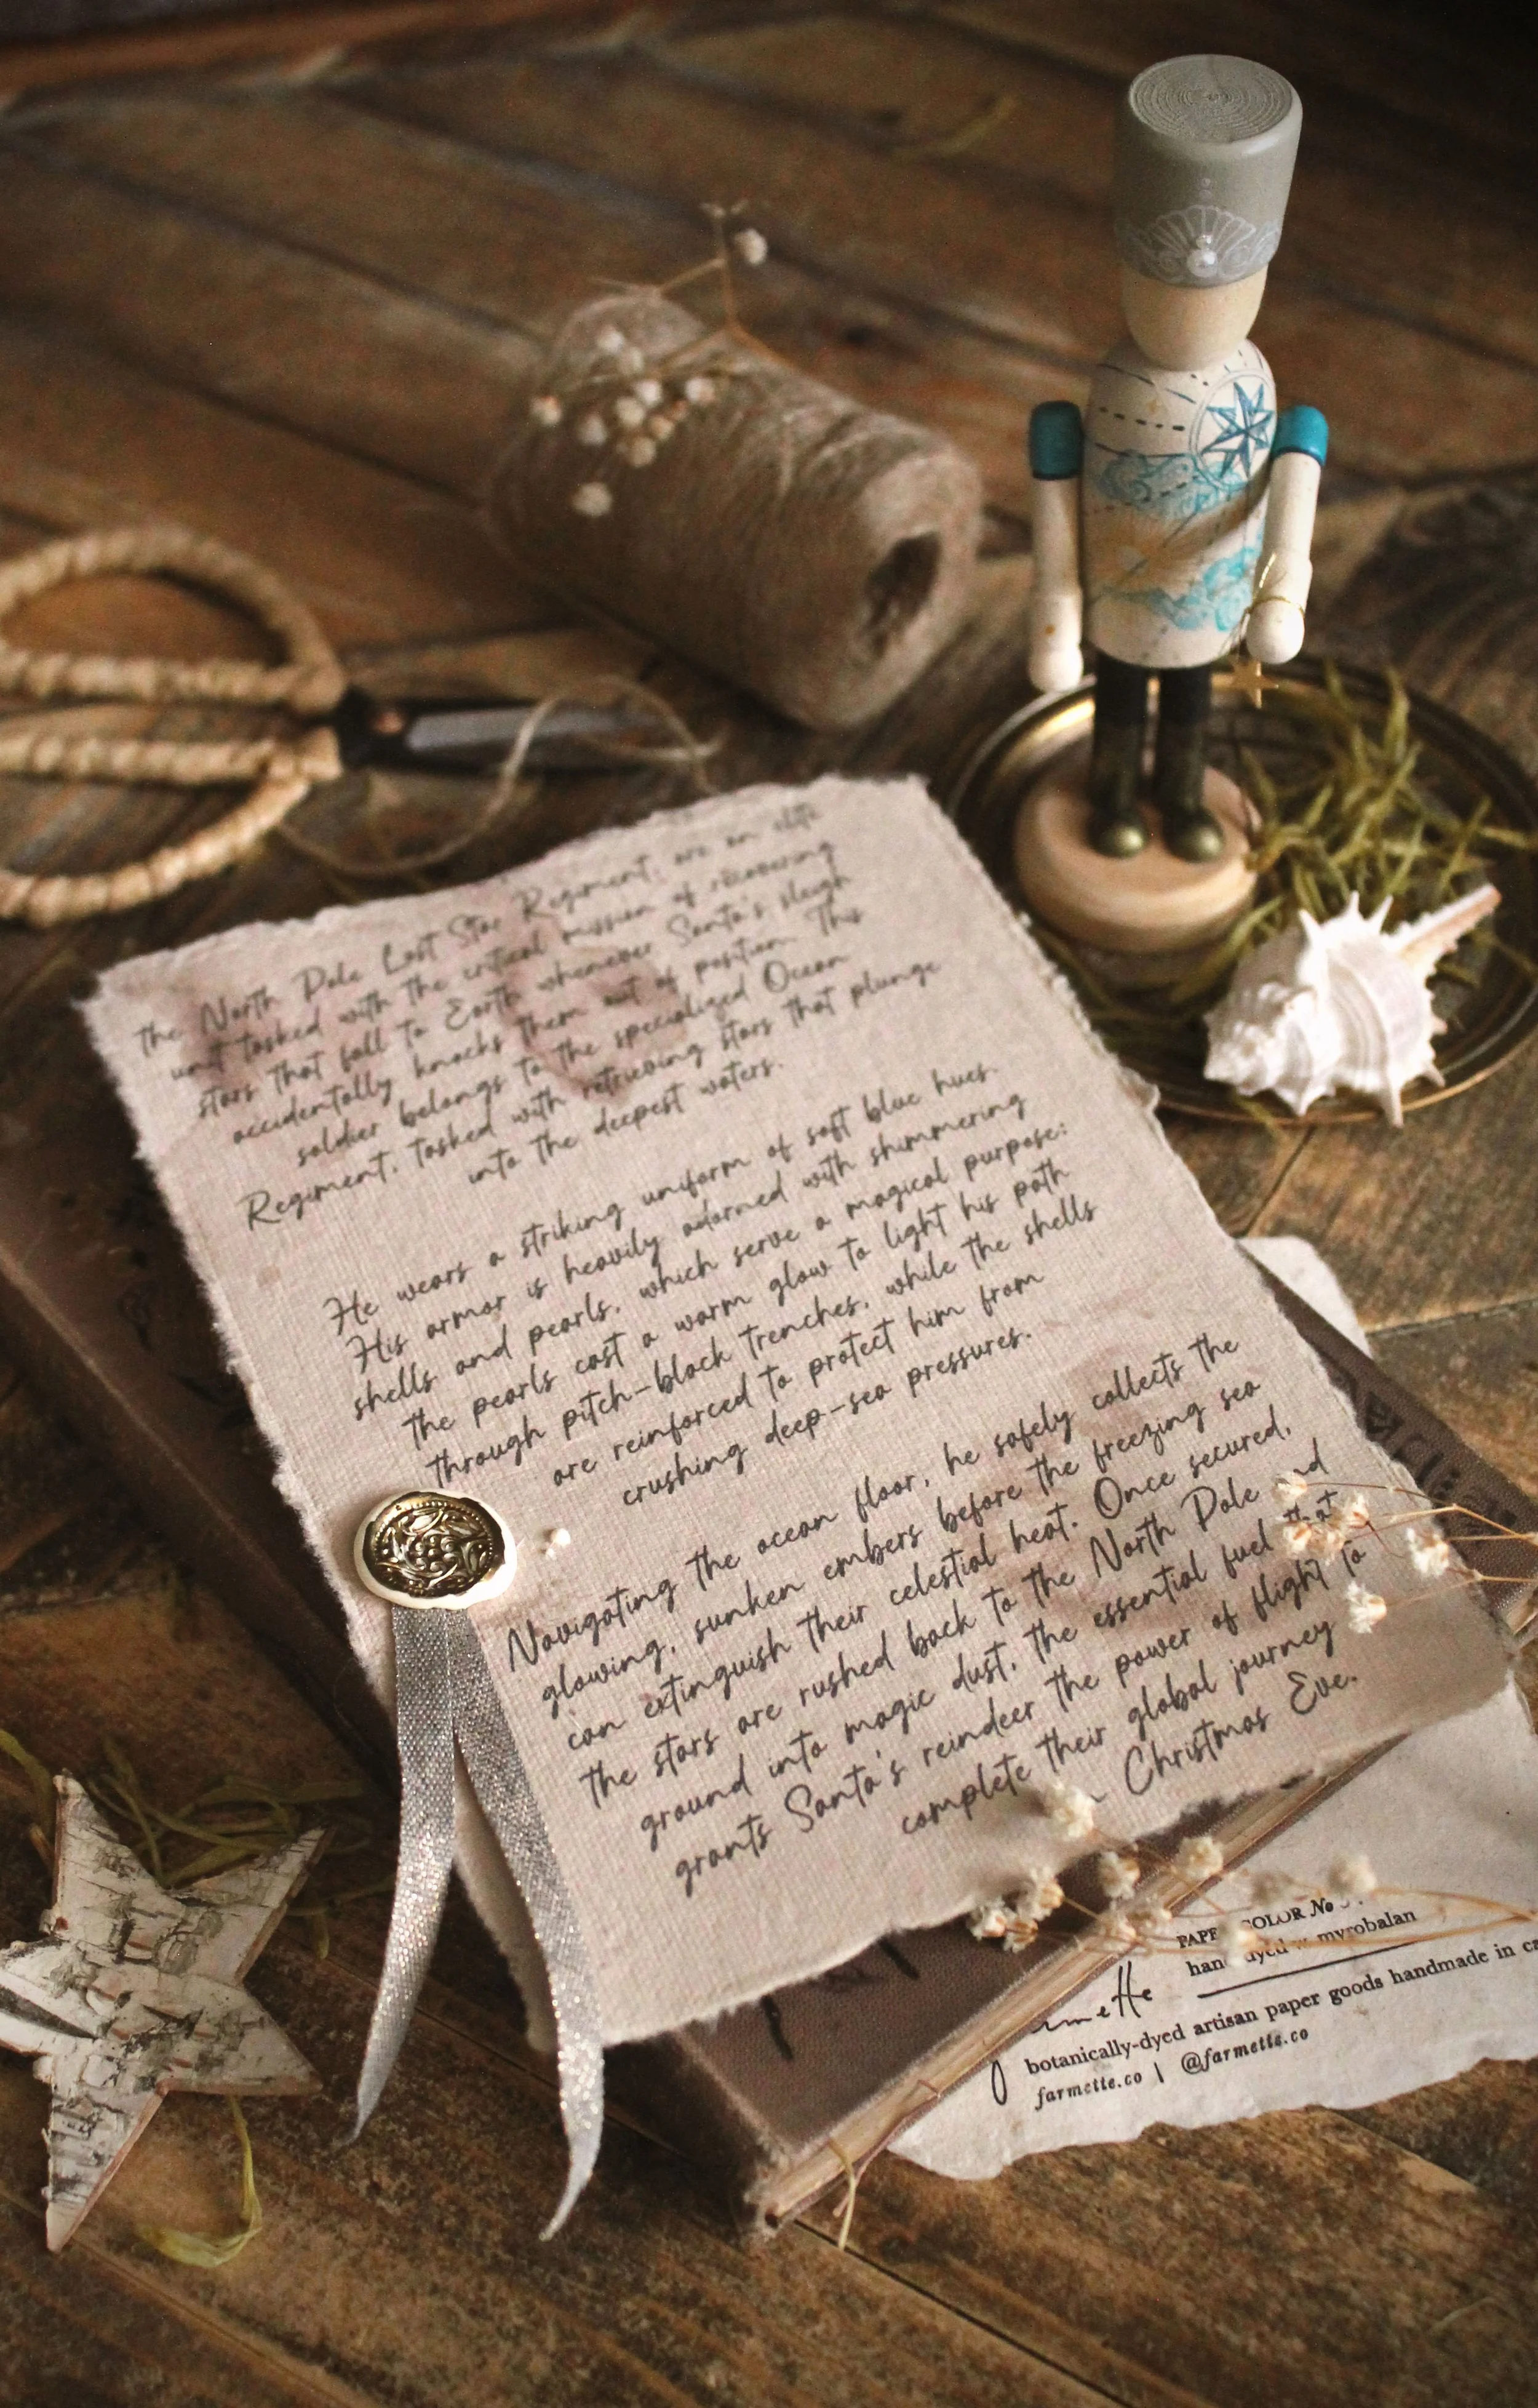 the North Pole Lost Star Regiment, are an elite
unit tasked with the critical mission of recovering
stars that fall to Earth whenever Santa's sleigh
accidentally knocks them out of position. This
soldier belongs to the specialized Ocean
Regiment, tasked with retrieving stars that plunge
into the deepest waters.
He wears a striking uniform of soft blue hues.
His armor is heavily adorned with shimmering
shells and pearls, which serve a magical purpose:
the pearls cast a warm glow to light his path
through pitch-black trenches, while the shells
are reinforced to protect him from
crushing deep-sea pressures.
Navigating the ocean floor, he safely collects the
glowing, sunken embers before the freezing sea
can extinguish their celestial heat. Once secured,
the stars are rushed back to the North Pole and
ground into magic dust, the essential fuel that
grants Santa's reindeer the power of flight to
complete their global journey
Christmas Eve.
COLOR No
myrobalan
botanically-dyed artisan paper goods handmade in
farmette.co | @farmette.co